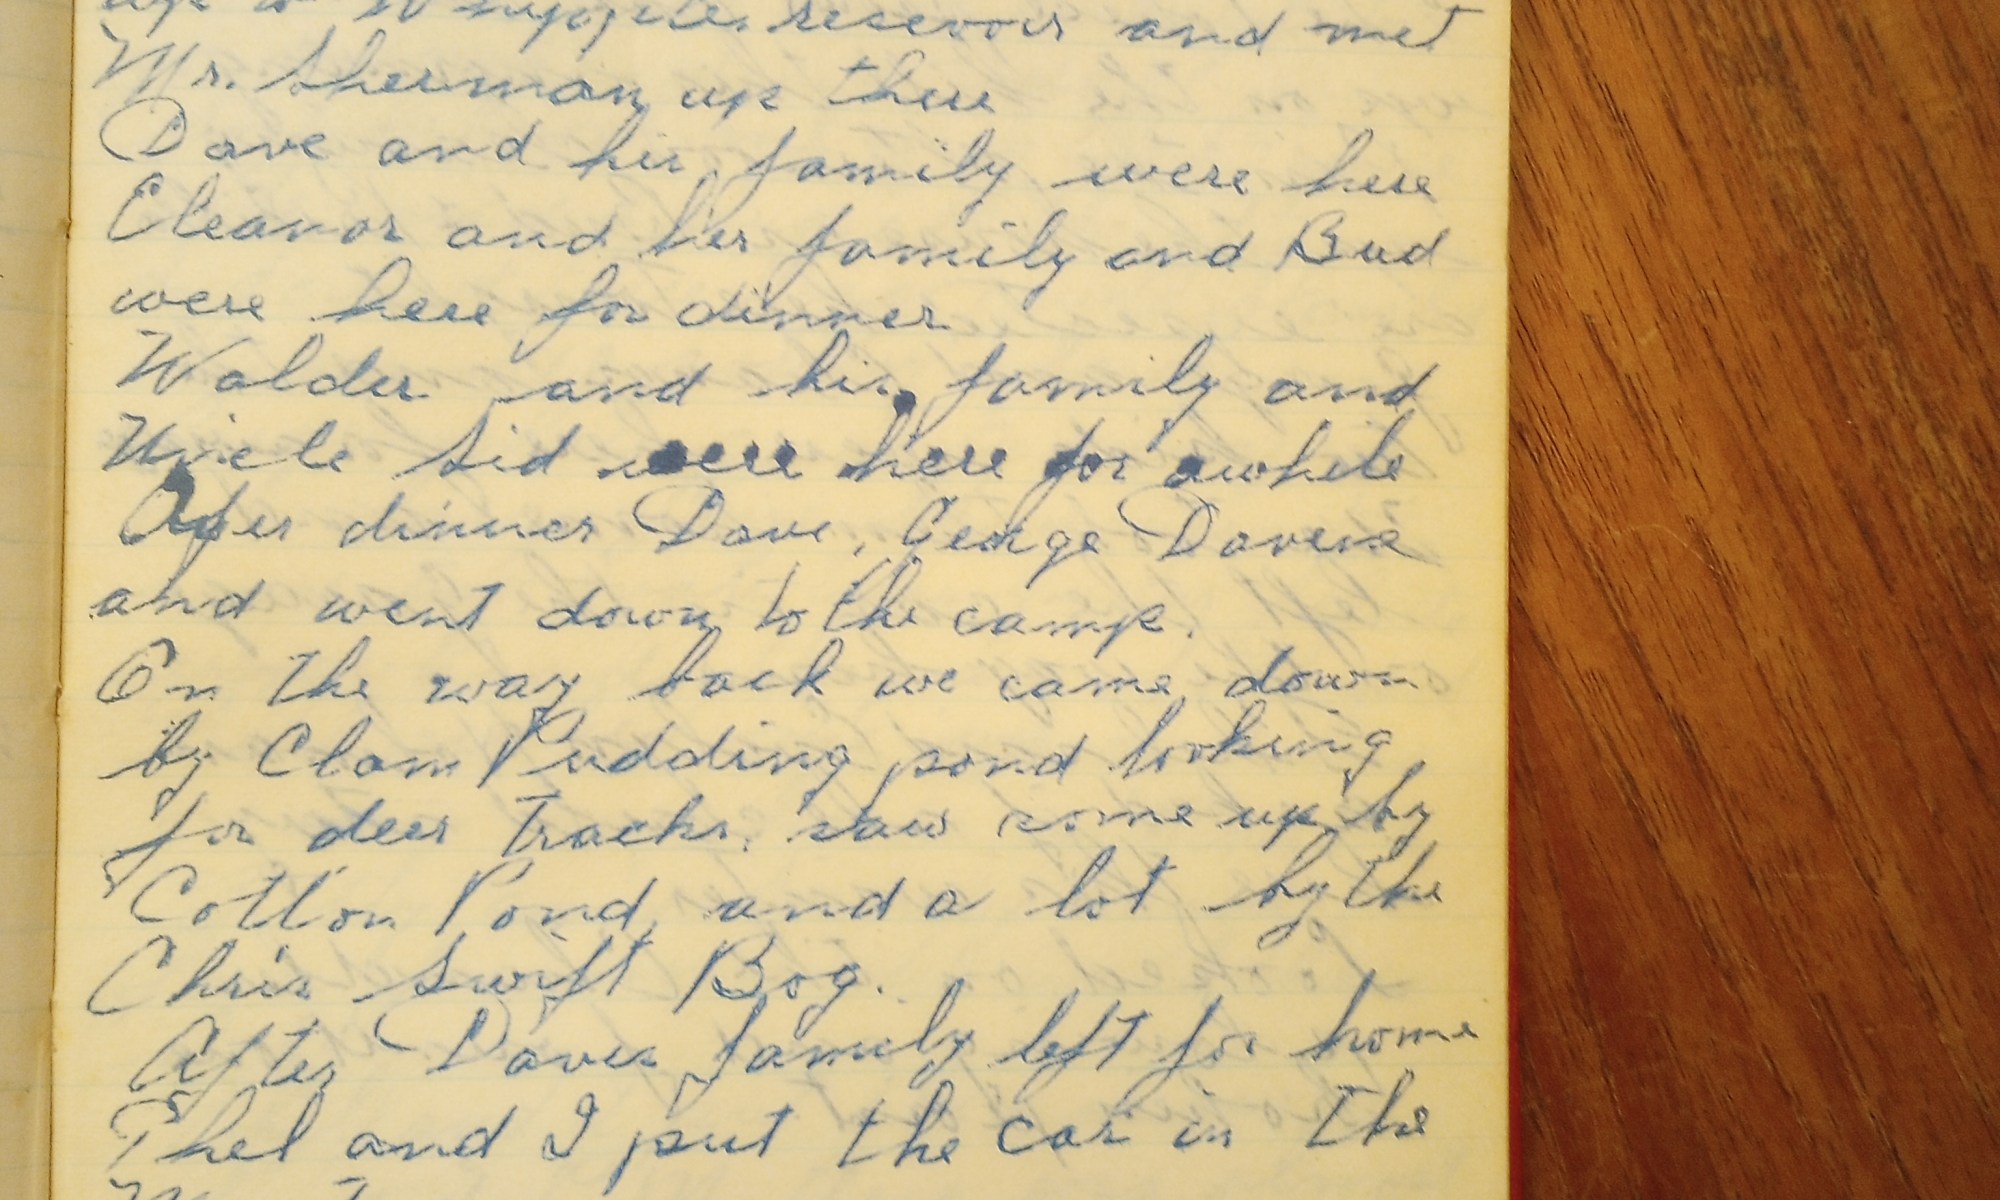 up to resevoir and met
Mr. Sherman up there
Dave and his family were here
Eleanor and her family and Bud
were here for dinner
Walder and his family and
Uncle Sid were here for awhile
After dinner Dave, George Davene
and went down to the camp.
On the way back we came down
by Clam Pudding pond looking
for deer tracks, saw some up by
Cotton Pond, and a lot by the
Chris Swift Bog.
After Daves family left for home
Thel and I put the car in the